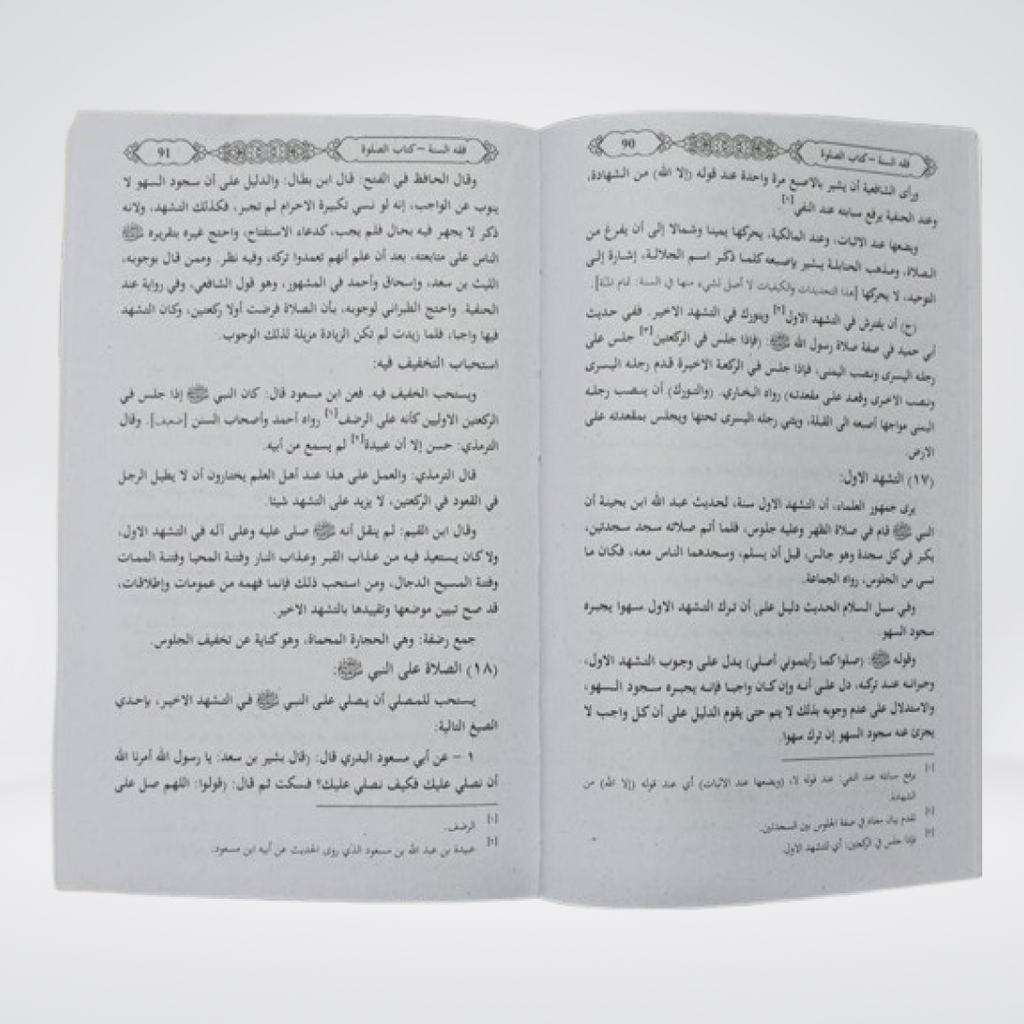 فقه السنة – كتاب الصلوة
90
ورأى الشافعية أن يشير بالاصبع مرة واحدة عند قوله (إلا الله) من الشهادة،
وعند الحنفية يرفع سبابته عند النفي[١].
ويضعها عند الاثبات، وعند المالكية، يحركها يمينا وشمالا إلى أن يفرغ من
الصلاة، ومذهب الحنابلة يشير بإصبعه كلما ذكر اسم الجلالة، إشارة إلى
التوحيد، لا يحركها [هذا التحديدات والكيفيات لا أصل لشيء منها في السنة: تمام المنة].
(ج) أن يفترش في التشهد الاول[٢] ويتورك في التشهد الاخير. ففي حديث
أبي حميد في صفة صلاة رسول الله ﷺ: (فإذا جلس في الركعتين[٣] جلس على
رجله اليسرى ونصب اليمنى، فإذا جلس في الركعة الاخيرة قدم رجله اليسرى
ونصب الاخرى وقعد على مقعدته) رواه البخاري. (والتورك) أن ينصب رجله
اليمنى مواجها أصبعه الى القبلة، ويثني رجله اليسرى تحتها ويجلس بمقعدته على
الارض.
(١٧) التشهد الاول:
يرى جمهور العلماء، أن التشهد الاول سنة، لحديث عبد الله ابن بحينة أن
النبي ﷺ قام في صلاة الظهر وعليه جلوس، فلما أتم صلاته سجد سجدتين،
يكبر في كل سجدة وهو جالس، قبل أن يسلم، وسجدهما الناس معه، فكان ما
نسي من الجلوس، رواه الجماعة.
وفي سبل السلام الحديث دليل على أن ترك التشهد الاول سهوا يجبره
سجود السهو.
وقوله ﷺ: (صلوا كما رأيتموني أصلي) يدل على وجوب التشهد الاول،
وجبرانه عند تركه، دل على أنه وإن كان واجبا فإنه يجبره سجود السهو،
والاستدلال على عدم وجوبه بذلك لا يتم حتى يقوم الدليل على أن كل واجب لا
يجزئ عنه سجود السهو إن ترك سهوا.
[١] يرفع سبابته عند النفي: عند قوله لا، (ويضعها عند الاثبات) أي عند قوله (إلا الله) من
الشهادة.
[٢] تقدم بيان معناه في صفة الجلوس بين السجدتين.
[٣] فإذا جلس في الركعتين: أي للتشهد الاول.
فقه السنة – كتاب الصلوة
91
وقال الحافظ في الفتح: قال ابن بطال: والدليل على أن سجود السهو لا
ينوب عن الواجب، إنه لو نسي تكبيرة الاحرام لم تجبر، فكذلك التشهد، ولانه
ذكر لا يجهر فيه بحال فلم يجب، كدعاء الاستفتاح، واحتج غيره بتقريره ﷺ
الناس على متابعته، بعد أن علم أنهم تعمدوا تركه، وفيه نظر. وممن قال بوجوبه،
الليث بن سعد، وإسحاق وأحمد في المشهور، وهو قول الشافعي، وفي رواية عند
الحنفية. واحتج الطبراني لوجوبه، بأن الصلاة فرضت أولا ركعتين، وكان التشهد
فيها واجبا، فلما زيدت لم تكن الزيادة مزيلة لذلك الوجوب.
استحباب التخفيف فيه:
ويستحب الخفيف فيه. فعن ابن مسعود قال: كان النبي ﷺ إذا جلس في
الركعتين الاوليين كأنه على الرضف[١] رواه أحمد وأصحاب السنن [ضعيف]. وقال
الترمذي: حسن إلا أن عبيدة[٢] لم يسمع من أبيه.
قال الترمذي: والعمل على هذا عند أهل العلم يختارون أن لا يطيل الرجل
في القعود في الركعتين، لا يزيد على التشهد شيئا.
وقال ابن القيم: لم ينقل أنه ﷺ صلى عليه وعلى آله في التشهد الاول،
ولا كان يستعيذ فيه من عذاب القبر وعذاب النار وفتنة المحيا وفتنة الممات
وفتنة المسيح الدجال، ومن استحب ذلك فإنما فهمه من عمومات وإطلاقات،
قد صح تبيين موضعها وتقييدها بالتشهد الاخير.
جمع رضفة: وهي الحجارة المحماة، وهو كناية عن تخفيف الجلوس.
(١٨) الصلاة على النبي ﷺ:
يستحب للمصلي أن يصلي على النبي ﷺ في التشهد الاخير، بإحدى
الصيغ التالية:
١ – عن أبي مسعود البدري قال: (قال بشير بن سعد: يا رسول الله أمرنا الله
أن نصلي عليك فكيف نصلي عليك؟ فسكت ثم قال: (قولوا: اللهم صل على
[١] الرضف.
[٢] عبيدة بن عبد الله بن مسعود الذي روى الحديث عن أبيه ابن مسعود.